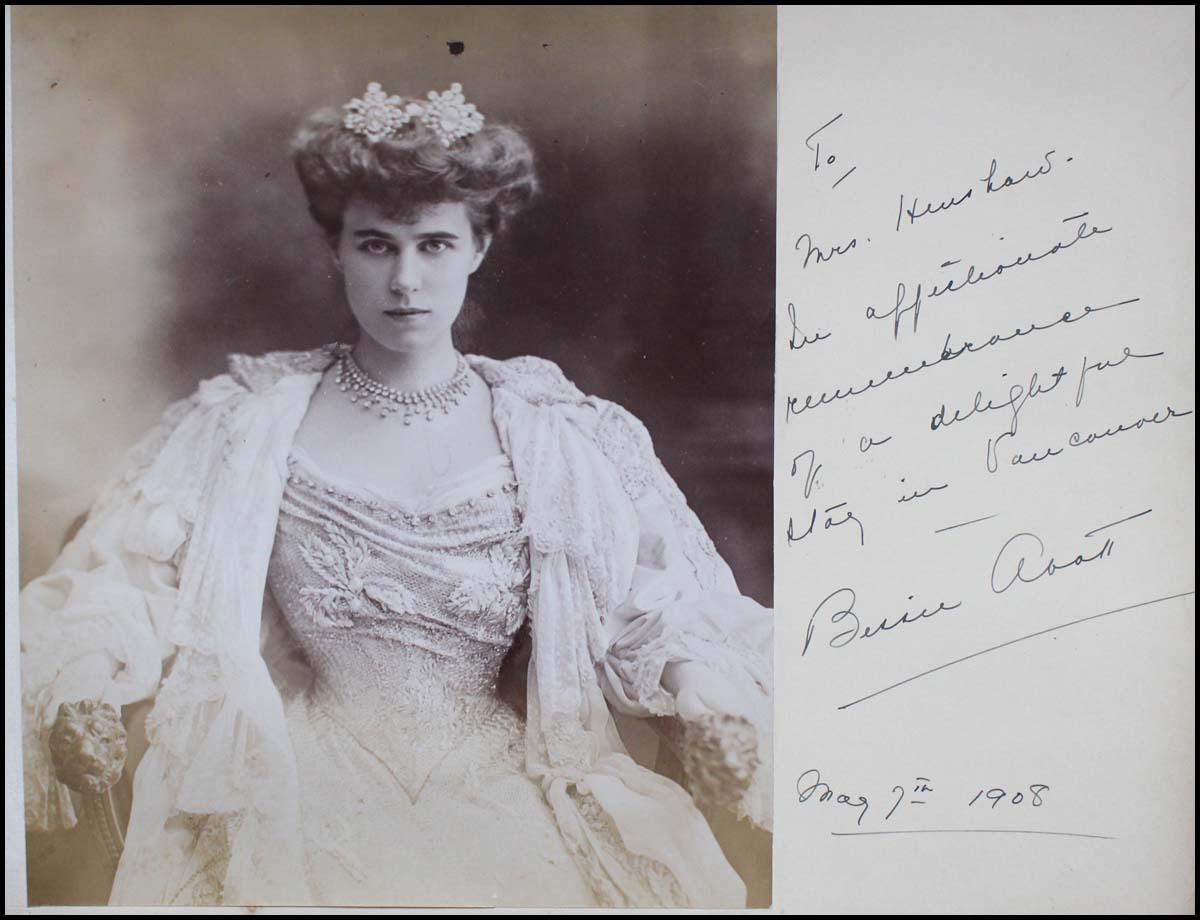 To
Mrs. Henshaw.
In affectionate
remembrance
of a delightful
stay in Vancouver
Bessie Abott
May 7th 1908